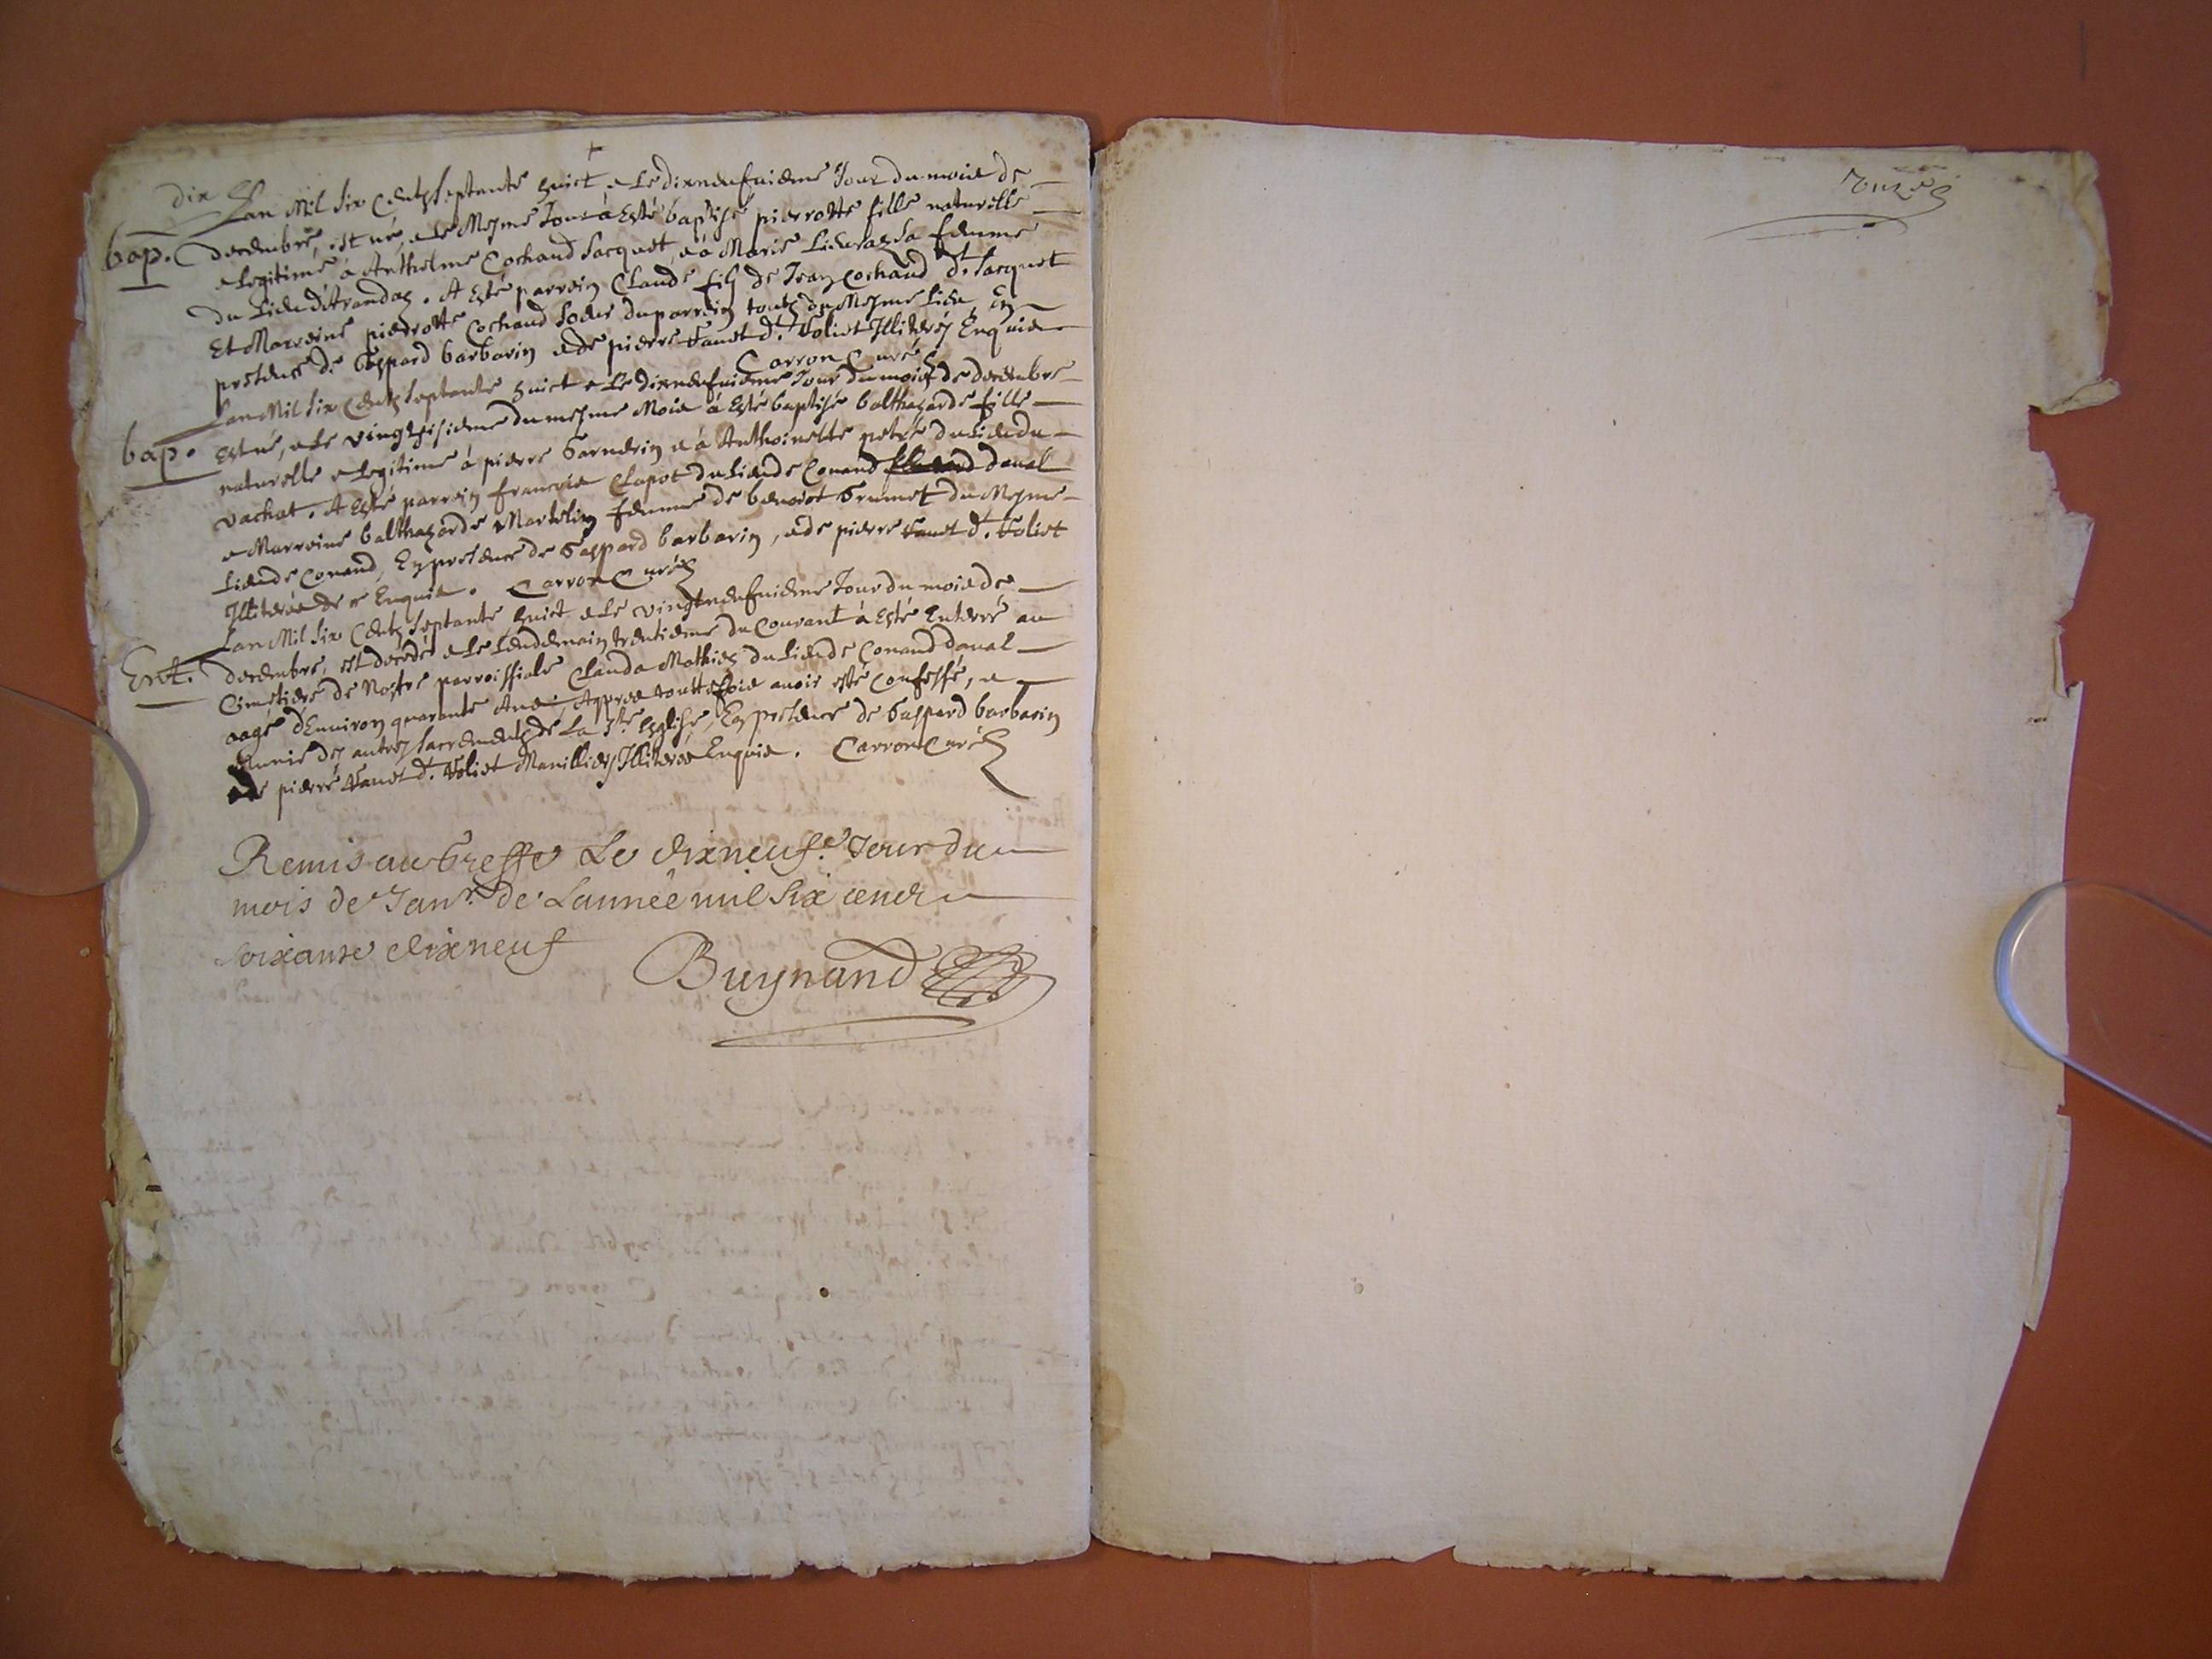 dix
Lan Mil Six Centz septante huict, e Le dixneufuieme Jour du mois de
bap. decembre, est né, e le Mesme Jour à Esté baptisé pierrotte fille naturelle
e Legitime à Anthelme Cochaud Jacquet, e à Marie Lieuraz sa femme
du Lieu d'Arandaz. A Esté parrein Claude filz de Jean Cochaud dt. Jacquet
Et Marreine pierrotte Cochaud soeur du parrein toutz du Mesme Lieu, En
presence de Gaspard barbarin e de pierre dt. Illiterez Enquis
Carron Curé
Lan Mil Six Centz septante huict e Le dixneufuieme Jour du mois de decembre
bap. Est né, e Le vingthisieme du mesme Mois à Esté baptisé balthazarde fille
naturelle e Legitime à pierre e à Anthoinette du Lieu du
vachat. A Esté parrein françois Clapot du Lieu de Conand daual
e Marreine balthazarde Martelin femme de benoict Grumet du Mesme
Lieu de Conand, En presence de Gaspard barbarin, e de pierre dt.
Illiteres de ce Enquis. Carron Curé
Lan Mil Six Centz septante huict e Le vingtneufuieme Jour du mois de
Ent. decembre, est decedé e Le Lendemain trentieme du Courant à Esté Enterré au
Cimetiere de Nostre parroissiale Clauda Mathieu du Lieu de Conand daual
aagé d'Enuiron quarante Ans, Appres touttefois auoir esté Confessé, e
Munie des autres sacrementz de La Ste. Eglise, En presence de Gaspard barbarin
e de pierre dt. Manilliers Illiteres Enquis. Carron Curé
Remis au Greffe Le dixneufe. Jour du
mois de Janr. de Lannée mil six cent
soixante dixneuf
Buynand